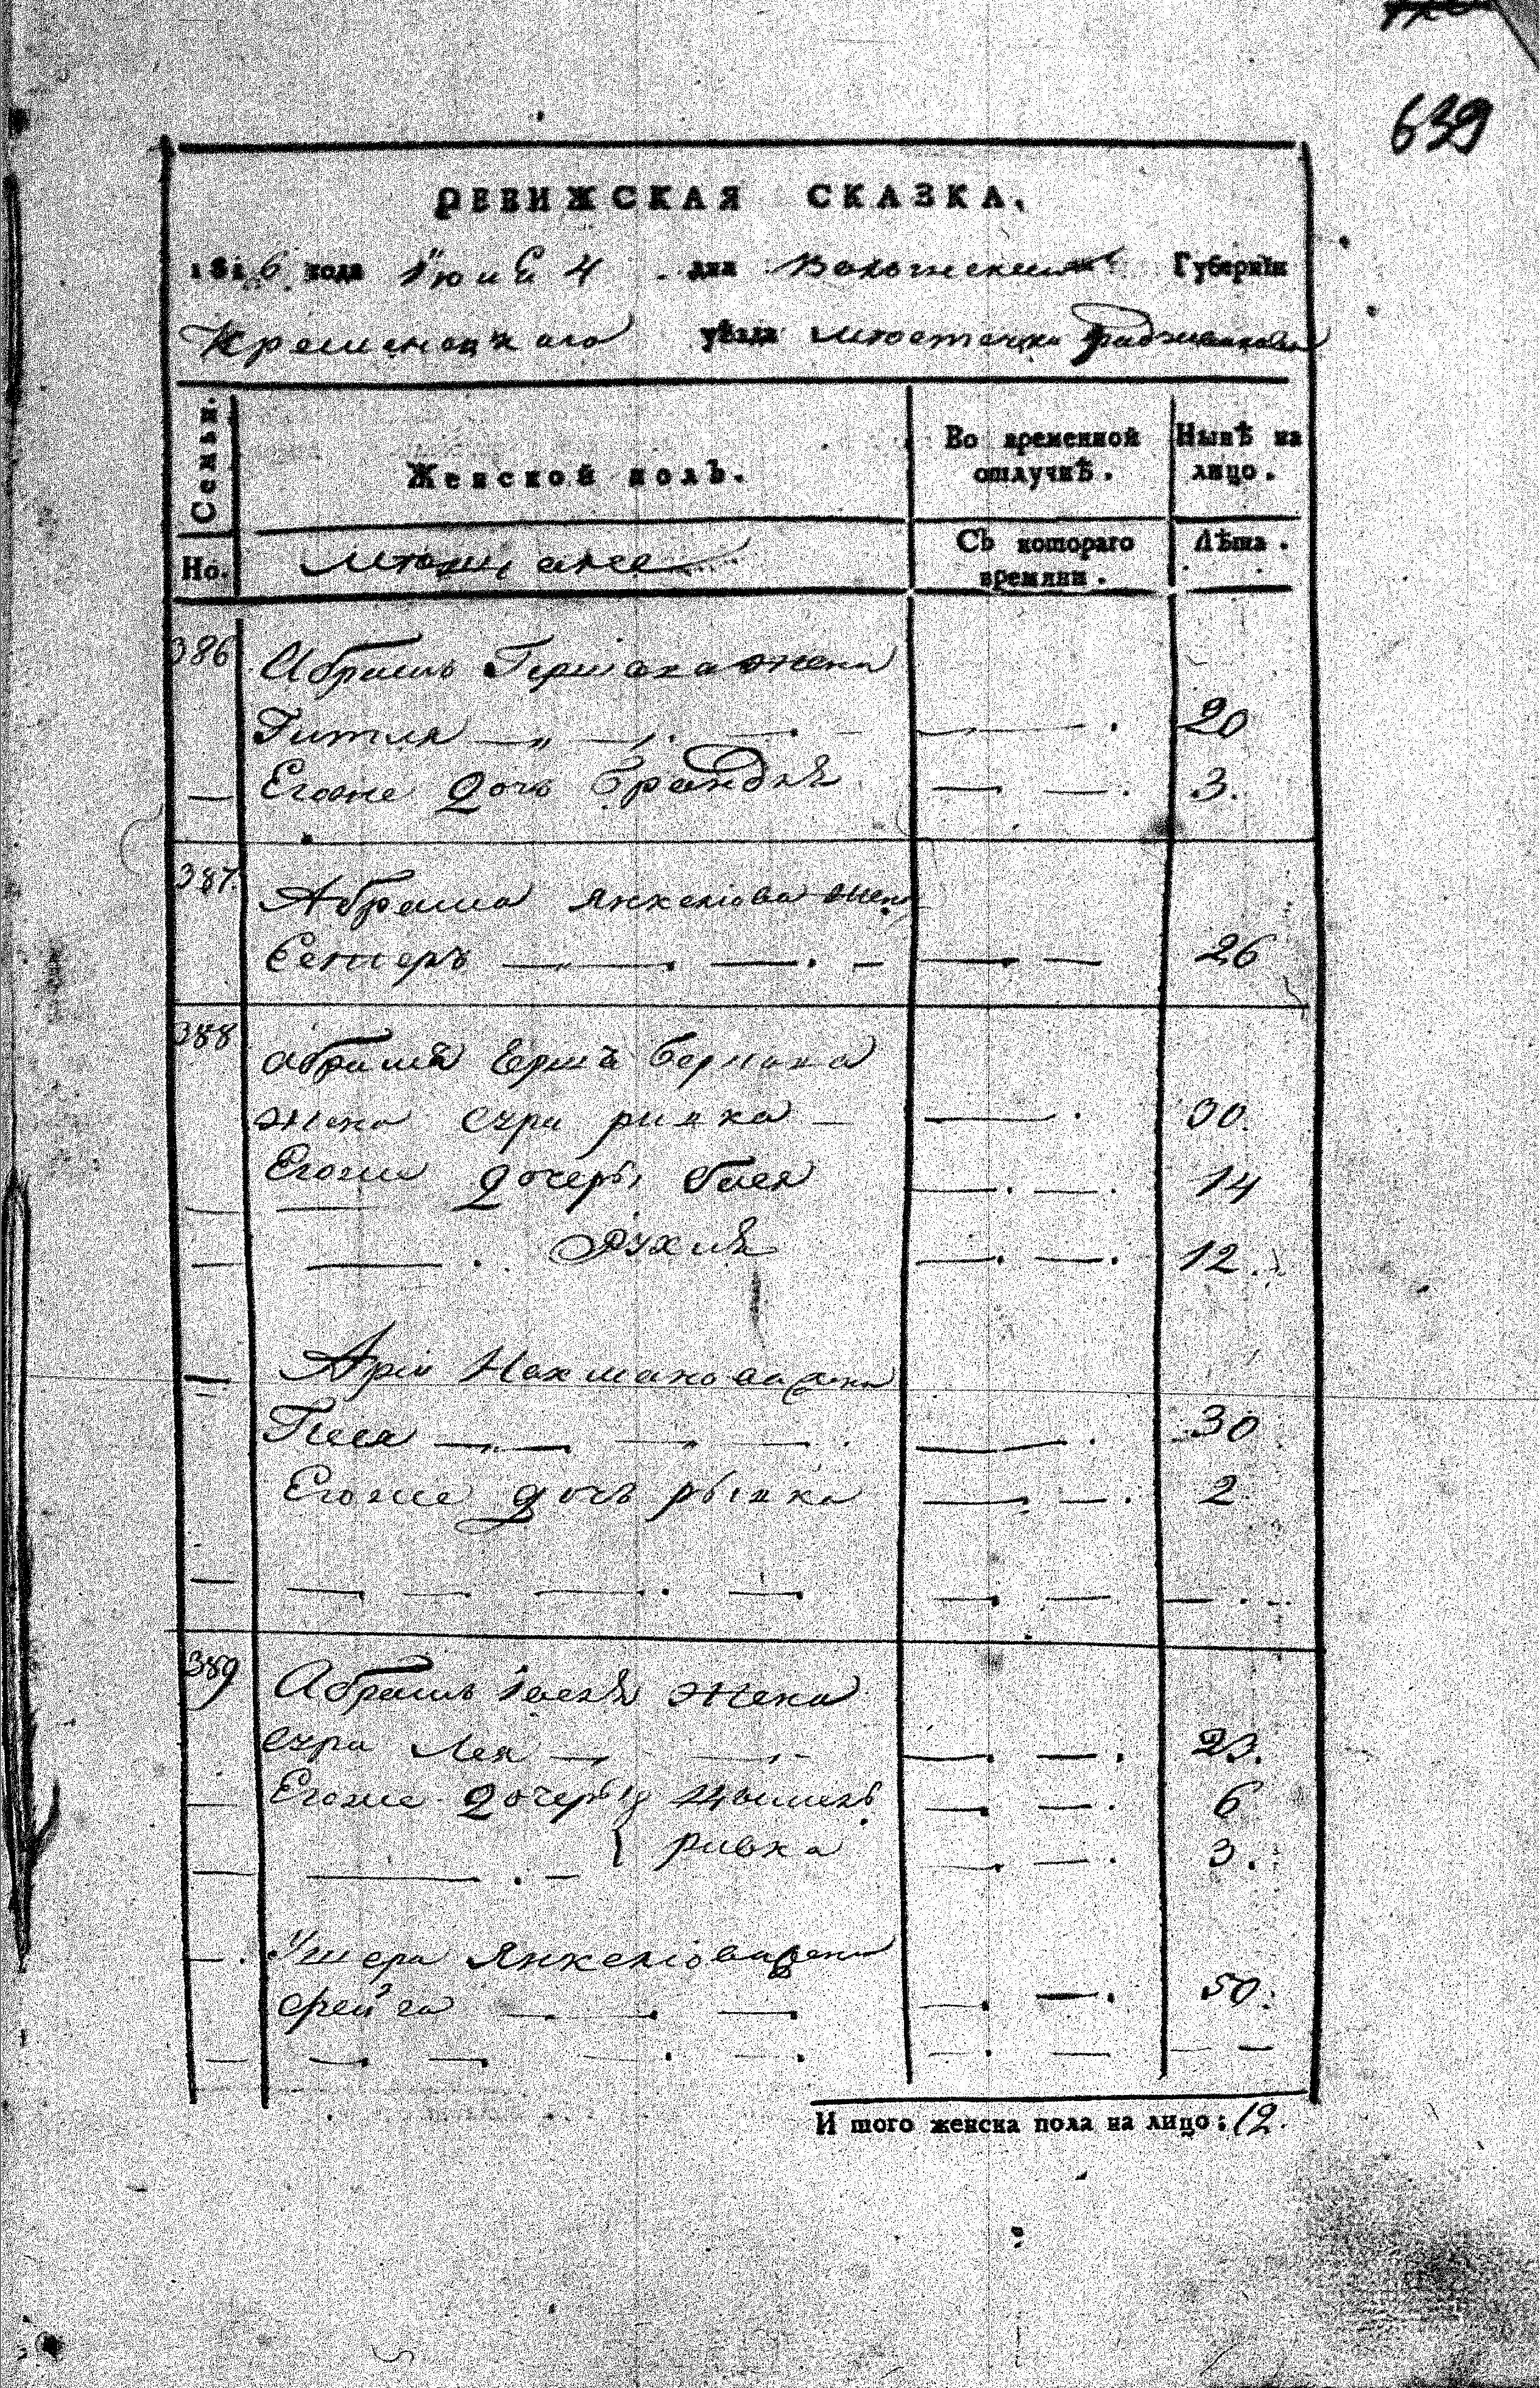 639
РЕВИЖСКАЯ СКАЗКА,
1816 года Іюня 4 дня Волынской Губерніи
Кременецкаго уѣзда мѣстечка Радзивилова
Семьи.
Женской полъ.
Во временной отлучкѣ.
Нынѣ на лицо.
Но.
мѣщане
Съ котораго времяни.
Лѣта.
386 Абрамъ Гершака жена
Гитля 20
Егоже дочь Брандля 3.
387. Абрама Янкеліова жена
Естеръ 26
388 Абрама Ерша Бермана
жена сура ривка 30.
Егоже дочеры бася 14
Рухля 12.
Арія Нахманова жена
Песя 30
Егоже дочь рывка 2
389 Абрамъ Іосея жена
сура Лея 23.
Егоже дочеры 6
ривка 3.
Ушера Янкеліова жена
фейга 50.
И того женска пола на лицо: 12.